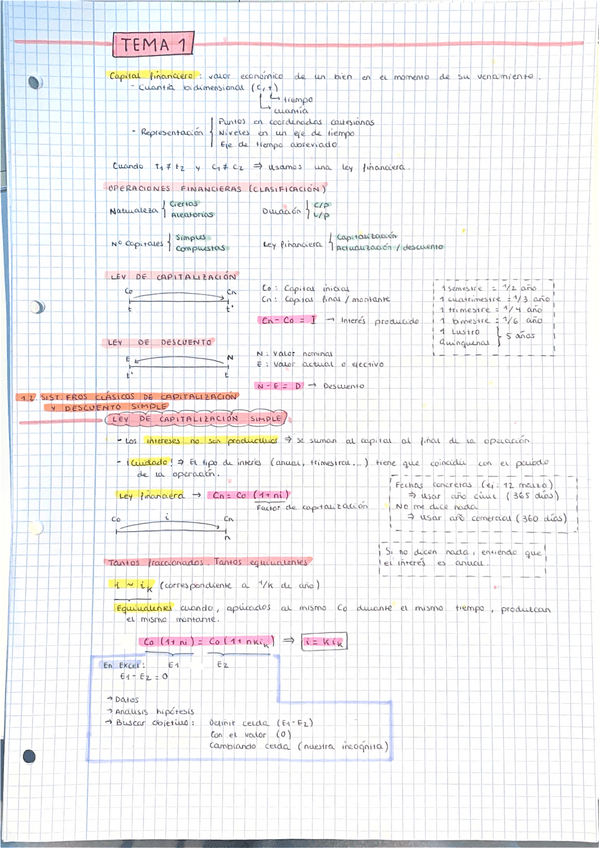 TEMA 1
Capital financiero: valor económico de un bien en el momento de su vencimiento.
- Cuantía bidimensional (C, t)
tiempo
cuantía
- Representación
Puntos en coordenadas cartesianas
Niveles en un eje de tiempo
Eje de tiempo abreviado
Cuando t1 ≠ t2 y C1 ≠ C2 ⇒ usamos una ley financiera.
OPERACIONES FINANCIERAS (CLASIFICACIÓN)
Naturaleza { Ciertas
Aleatorias
Duración { C/P
L/P
Nº capitales { Simples
Compuestas
Ley financiera { Capitalización
Actualización / descuento
LEY DE CAPITALIZACIÓN
Co Cn
t t'
Co: Capital inicial
Cn: Capital final / montante
Cn - Co = I → Interés producido
1 semestre = 1/2 año
1 cuatrimestre = 1/3 año
1 trimestre = 1/4 año
1 bimestre = 1/6 año
1 Lustro
Quinquenal } 5 años
LEY DE DESCUENTO
E N
t' t
N: Valor nominal
E: Valor actual o efectivo
N - E = D → Descuento
1.2. SIST. FROS CLÁSICOS DE CAPITALIZACIÓN
Y DESCUENTO SIMPLE
LEY DE CAPITALIZACIÓN SIMPLE
- Los intereses no son productivos ⇒ se suman al capital al final de la operación
- ¡Cuidado! ⇒ El tipo de interés (anual, trimestral...) tiene que coincidir con el periodo
de la operación.
Ley financiera → Cn = Co (1+ni)
Factor de capitalización
Co i Cn
n
Fechas concretas (ej: 12 marzo)
⇒ usar año civil (365 días)
No me dice nada
⇒ usar año comercial (360 días)
Si no dicen nada, entiendo que
el interés es anual.
Tantos fraccionados. Tantos equivalentes
i ~ ik (correspondiente a 1/k de año)
Equivalentes cuando, aplicados al mismo Co durante el mismo tiempo, produzcan
el mismo montante.
Co (1+ni) = Co (1+nkik) ⇒ i = K ik
En Excel: E1 E2
E1 - E2 = 0
→ Datos
→ Análisis hipótesis
→ Buscar objetivo: Definir celda (E1-E2)
Con el valor (0)
Cambiando celda (nuestra incógnita)